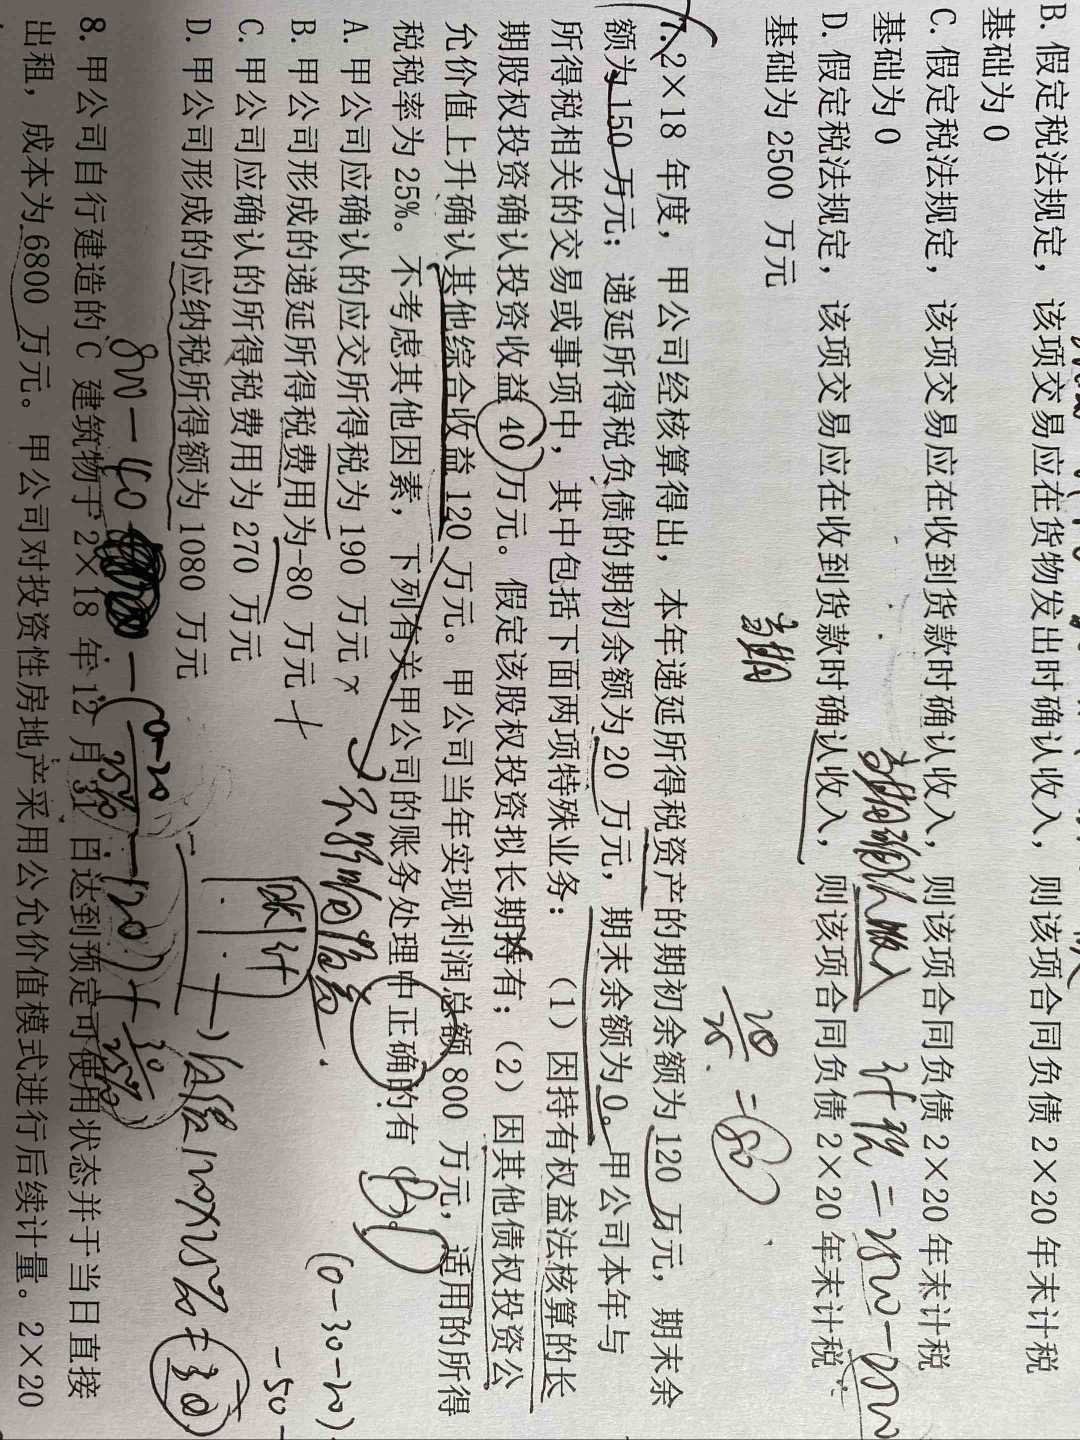 B. 假定税法规定，该项交易应在货物发出时确认收入，则该项合同负债 2×20 年末计税
基础为 0
C. 假定税法规定，该项交易应在收到货款时确认收入，则该项合同负债 2×20 年末计税
基础为 0
D. 假定税法规定，该项交易应在收到货款时确认收入，则该项合同负债 2×20 年末计税
基础为 2500 万元
7. 2×18 年度，甲公司经核算得出，本年递延所得税资产的期初余额为 120 万元，期末余
额为 150 万元；递延所得税负债的期初余额为 20 万元，期末余额为 0。甲公司本年与
所得税相关的交易或事项中，其中包括下面两项特殊业务：（1）因持有权益法核算的长
期股权投资确认投资收益 40 万元。假定该股权投资拟长期持有；（2）因其他债权投资公
允价值上升确认其他综合收益 120 万元。甲公司当年实现利润总额 800 万元，适用的所得
税税率为 25%。不考虑其他因素，下列有关甲公司的账务处理中正确的有（B）
A. 甲公司应确认的应交所得税为 190 万元 ×
B. 甲公司形成的递延所得税费用为-80 万元
C. 甲公司应确认的所得税费用为 270 万元
D. 甲公司形成的应纳税所得额为 1080 万元
(0-30-20)
-50-
120×25%=30
8. 甲公司自行建造的 C 建筑物于 2×18 年 12 月 31 日达到预定可使用状态并于当日直接
出租，成本为 6800 万元。甲公司对投资性房地产采用公允价值模式进行后续计量。2×20